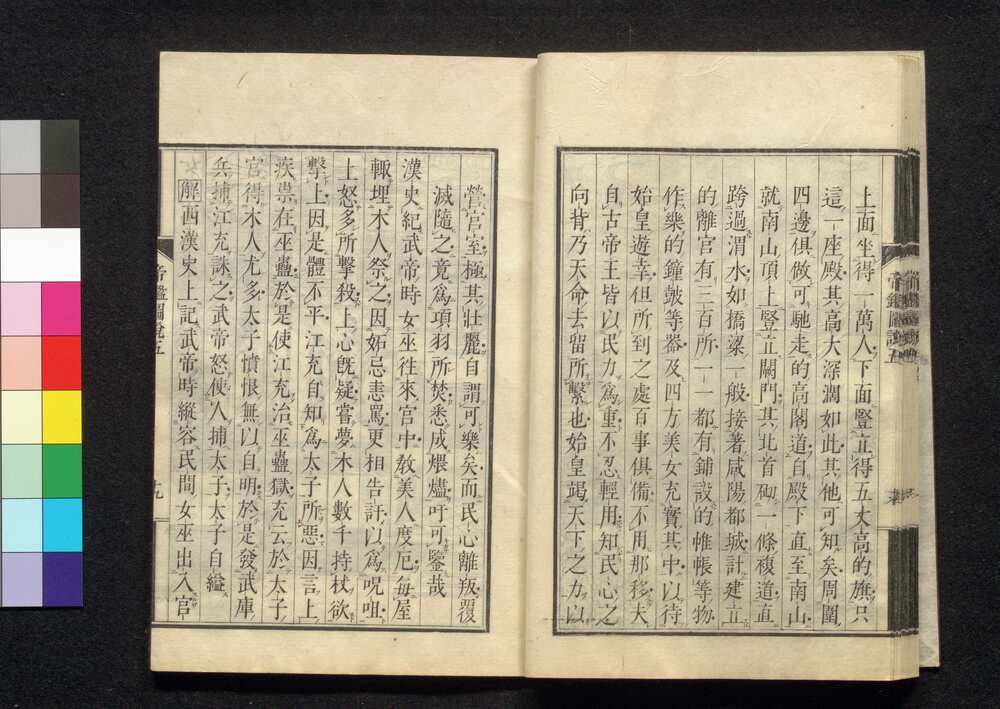 上面坐得一萬人下面豎立得五丈高的旗只
這一座殿其高大深濶如此其他可知矣周圍
四邊俱做可馳走的高閣道自殿下直至南山
就南山頂上豎立闕門其北首砌一條複道直
跨過渭水如橋梁一般接著咸陽都城計建立
的離宮有三百所一一都有鋪設的帷帳等物
作樂的鐘皷等器及四方美女充實其中以待
始皇遊幸但所到之處百事俱備不用那移夫
自古帝王皆以民力為重不忍輕用知民心之
向背乃天命去留所繫也始皇竭天下之力以
營宮室極其壯麗自謂可樂矣而民心離叛覆
滅隨之竟為項羽所焚悉成煨燼吁可鑒哉
漢史紀武帝時女巫往來宮中教美人度厄每屋
輙埋木人祭之因妬忌恚罵更相告訐以為呪咀
上怒多所擊殺上心既疑嘗夢木人數千持杖欲
擊上因是體不平江充自知為太子所惡因言上
疾祟在巫蠱於是使江充治巫蠱獄充云於太子
宮得木人尤多太子憤恨無以自明於是發武庫
兵捕江充誅之武帝怒使人捕太子太子自縊
解西漢史上記武帝時縱容民間女巫出入宮
帝鑑圖說五